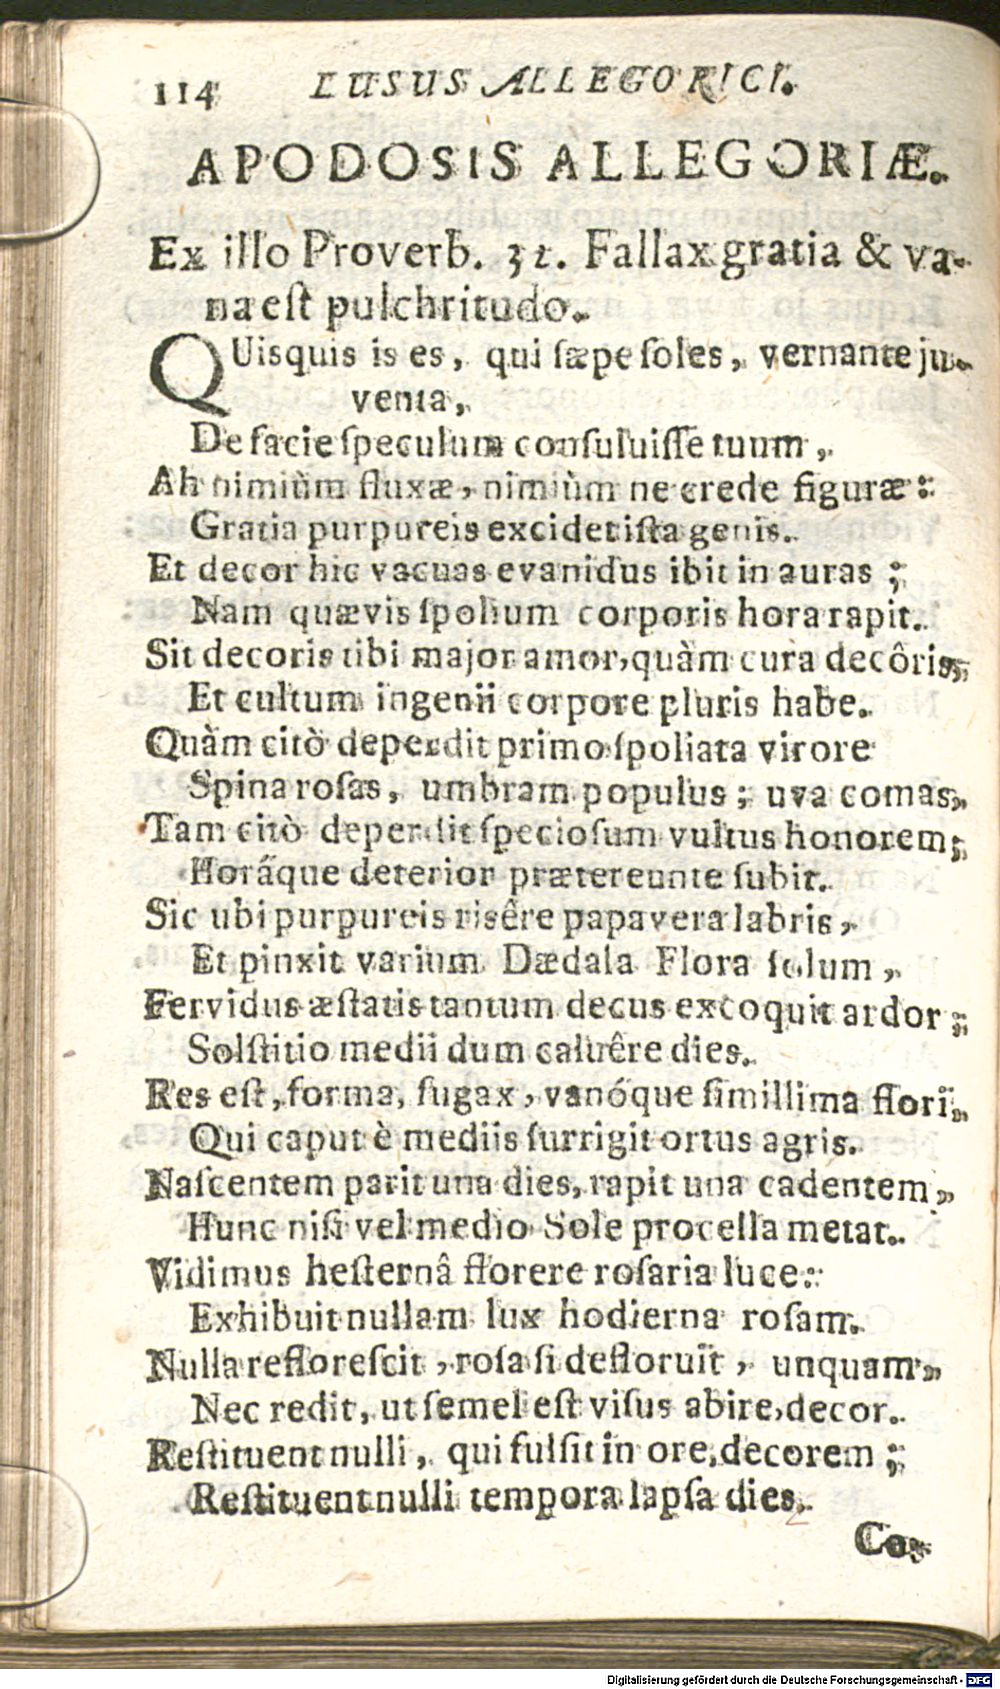 114 LUSUS ALLEGORICI.
APODOSIS ALLEGORIÆ.
Ex illo Proverb. 31. Fallax gratia & va-
na eſt pulchritudo.
QUisquis is es, qui ſæpe ſoles, vernante ju-
venta,
De facie ſpeculum conſuluiſſe tuum,
Ah nimiùm fluxæ, nimiùm ne crede figuræ:
Gratia purpureis excidet iſta genis.
Et decor hic vacuas evanidus ibit in auras;
Nam quævis ſpolium corporis hora rapit.
Sit decoris tibi major amor, quàm cura decôris,
Et cultum ingenii corpore pluris habe.
Quàm citò deperdit primo ſpoliata virore
Spina roſas, umbram populus; uva comas,
Tam citò deperdit ſpecioſum vultus honorem;
Horáque deterior prætereunte ſubit.
Sic ubi purpureis risêre papavera labris,
Et pinxit varium Dædala Flora ſolum,
Fervidus æſtatis tantum decus excoquit ardor;
Solſtitio medii dum caluêre dies.
Res eſt, forma, fugax, vanóque ſimillima flori,
Qui caput è mediis ſurrigit ortus agris.
Naſcentem parit una dies, rapit una cadentem,
Hunc niſi vel medio Sole procella metat.
Vidimus heſternâ florere roſaria luce:
Exhibuit nullam lux hodierna roſam.
Nulla refloreſcit, roſa ſi defloruit, unquam,
Nec redit, ut ſemel eſt viſus abire, decor.
Reſtituent nulli, qui fulſit in ore, decorem;
Reſtituent nulli tempora lapſa dies.
Co-
Digitalisierung gefördert durch die Deutsche Forschungsgemeinschaft - DFG